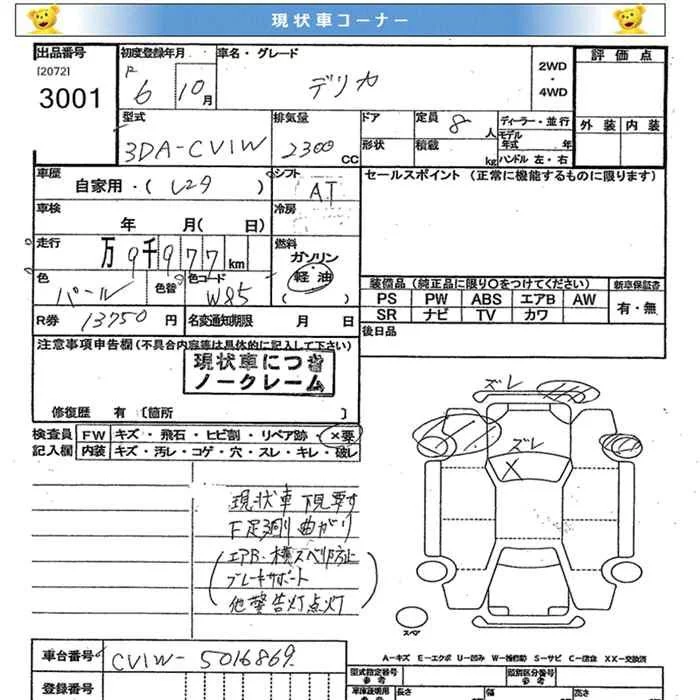 現状車コーナー
出品番号 初度登録年月 車名・グレード 2WD・4WD 評価点
[2072]
3001
R 6 10月 デリカ
型式 排気量 ドア 定員 8人 ディーラー・並行 外装 内装
3DA-CV1W 2300cc 形状 積載 kg モデル年式 年
ハンドル 左・右
車歴 シフト セールスポイント (正常に機能するものに限ります)
自家用・( ) AT
車検 冷房
年 月( 日)
走行 燃料
万9千977km ガソリン
軽油
( )
色 色替 色コード
パール W85
装備品(純正品に限り○をつけてください) 新車保証書
PS PW ABS エアB AW 有・無
SR ナビ TV カワ
R券 13750円 名変通知期限 月 日
後日品
注意事項申告欄(不具合内容等は具体的に記入して下さい)
現状車につき
ノークレーム
修復歴 有 [箇所 ]
検査員 FW キズ・飛石・ヒビ割・リペア跡・×要
記入欄 内装 キズ・汚レ・コゲ・穴・スレ・キレ・破レ
ズレ
ズレ
X
現状車 下見要す
下足廻り曲がり
(エアB・横スベリ防止
ブレーキサポート
他警告灯点灯)
スペア
A-キズ E-エクボ U-凹み W-補修跡 S-サビ C-腐食 XX-交換済
車台番号 CV1W-5016869
登録番号
型式指定番号 参考 類別区分番号 参考
長さ 幅 高さ